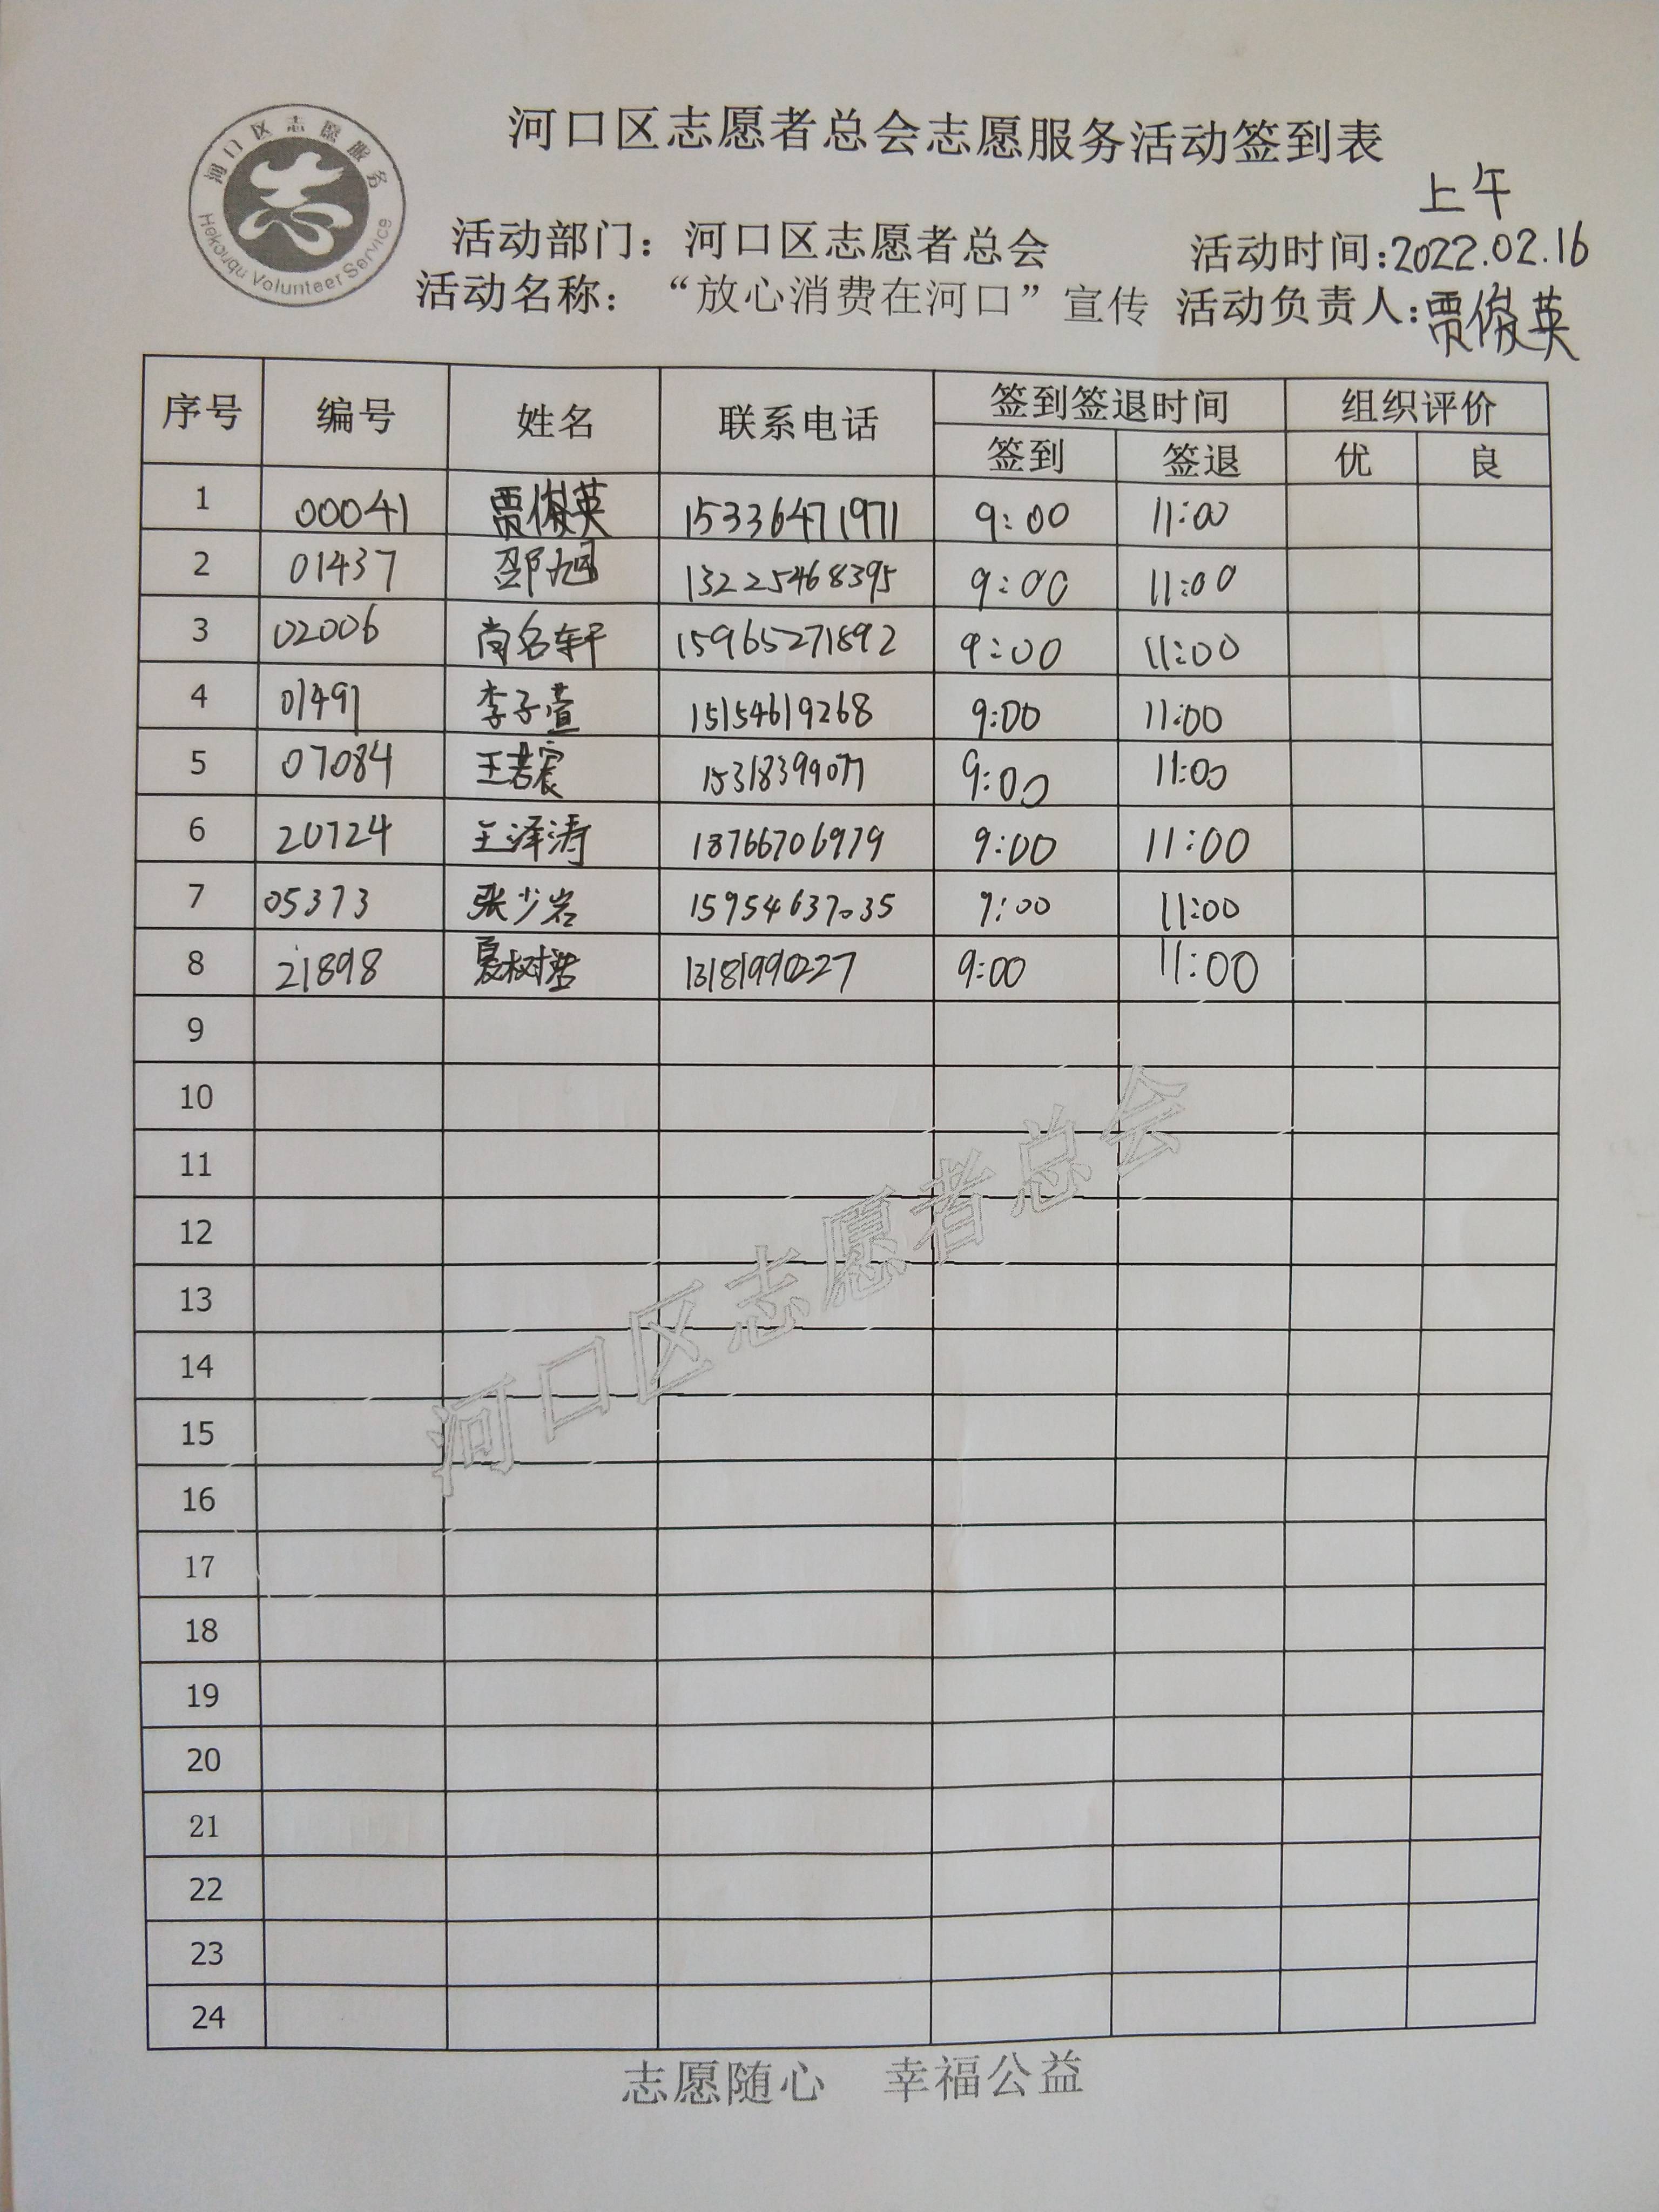 河口区志愿服务
Hekouqu Volunteer Service
河口区志愿者总会志愿服务活动签到表
上午
活动部门：河口区志愿者总会 活动时间:2022.02.16
活动名称：“放心消费在河口”宣传 活动负责人:贾俊英
序号 编号 姓名 联系电话 签到签退时间 组织评价
签到 签退 优 良
1 00041 贾俊英 15336471971 9:00 11:00
2 01437 邵旭 13225468395 9:00 11:00
3 02006 尚名轩 15965271892 9:00 11:00
4 01491 李子萱 15154619268 9:00 11:00
5 07084 王若宸 15318399077 9:00 11:00
6 20724 王泽涛 18766706979 9:00 11:00
7 05373 张少岩 15954637035 9:00 11:00
8 21898 夏树 13181990227 9:00 11:00
9
10
11
12
13
14
15
16
17
18
19
20
21
22
23
24
河口区志愿者总会
志愿随心 幸福公益